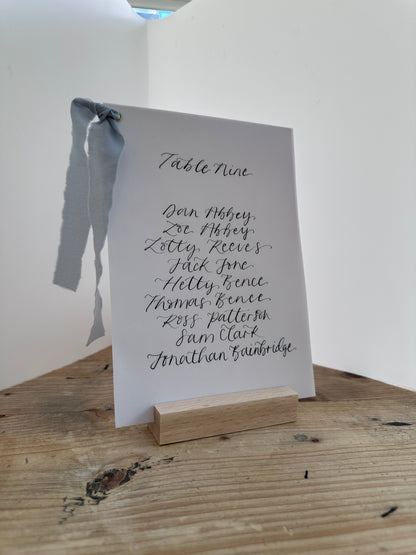 Table Nine
Dan Abbey
Zoe Abbey
Lotty Reeves
Jack Jone
Hetty Bence
Thomas Bence
Ross Patterson
Sam Clark
Jonathan Bainbridge